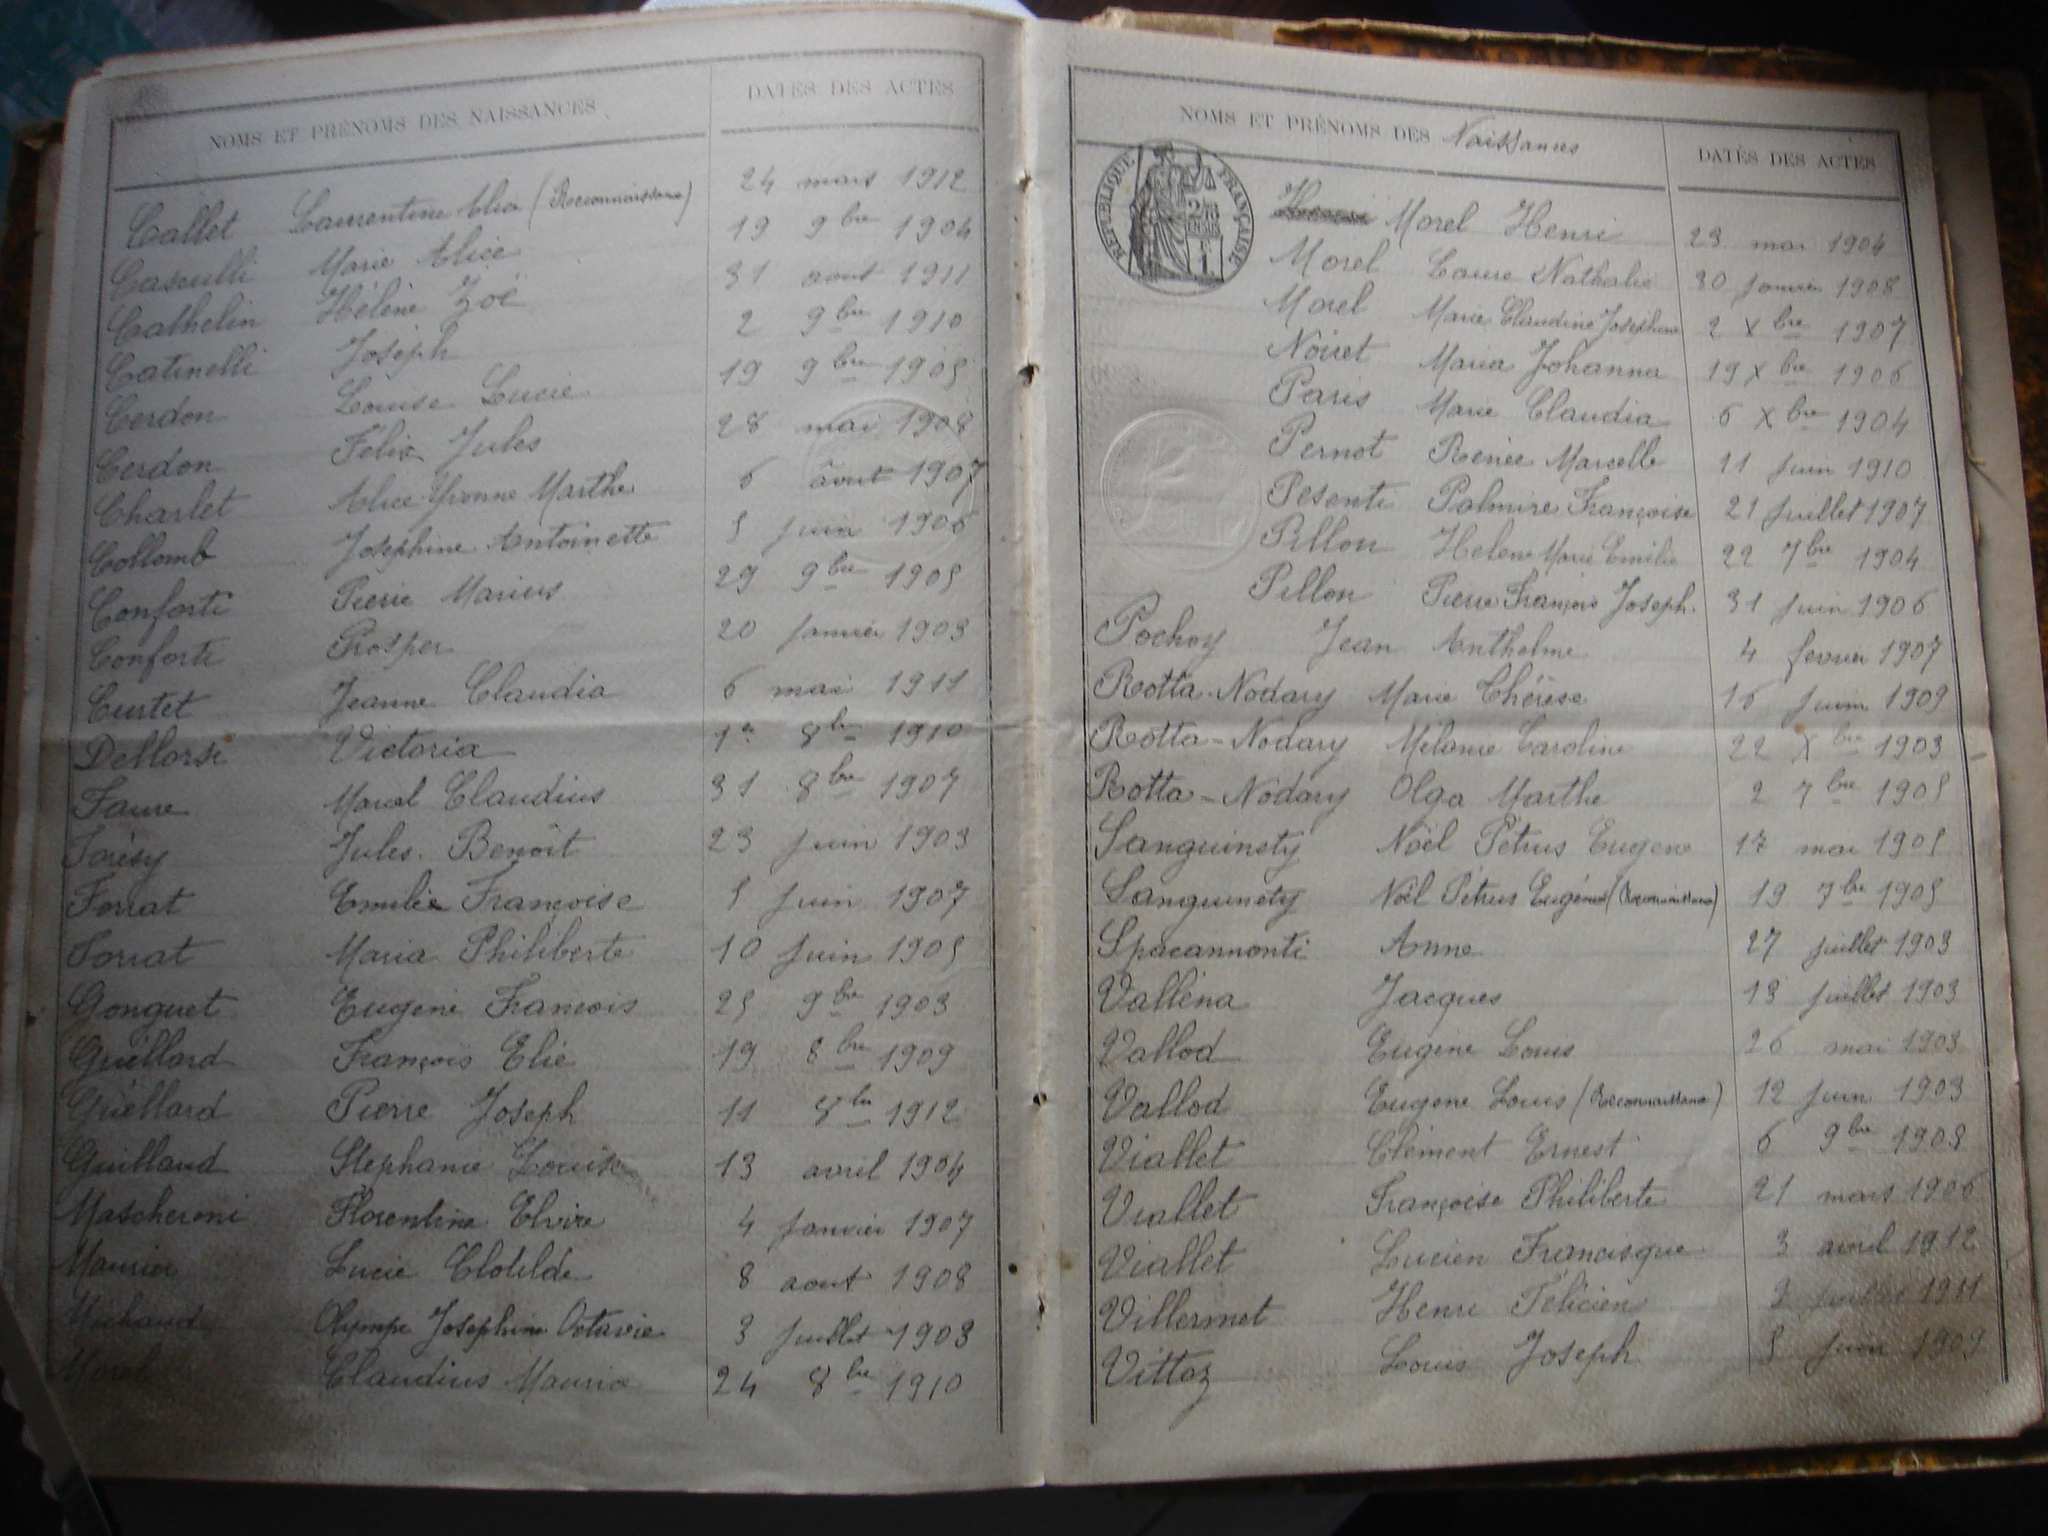 NOMS ET PRÉNOMS DES NAISSANCES DATES DES ACTES
Callet Laurentine Alia (Reconnaissance) 24 mars 1912
Casculli Marie Alice 19 9bre 1904
Cathelin Hélène Zoé 31 août 1911
Catinelli Joseph 2 9bre 1910
Cerdon Louise Lucie 19 9bre 1905
Cerdon Félix Jules 28 mai 1908
Charlet Alice Yvonne Marthe 6 âout 1907
Collomb Joséphine Antoinette 5 juin 1906
Conforti Pierre Marius 29 9bre 1905
Conforti Prosper 20 janvier 1903
Curtet Jeanne Claudia 6 mai 1911
Dellorsi Victoria 1er 8bre 1910
Faure Marcel Claudius 31 8bre 1907
Forésy Jules Benoît 23 juin 1903
Forrat Emilie Françoise 5 juin 1907
Forrat Maria Philiberte 10 juin 1905
Gonguet Eugène François 25 9bre 1903
Guillard François Elie 19 8bre 1909
Guillard Pierre Joseph 11 8bre 1912
Guilland Stephanie Louise 13 avril 1904
Mascheroni Florentine Elvire 4 janvier 1907
Maurier Lucie Clotilde 8 aout 1908
Michaud Olympe Joséphine Octavie 3 juillet 1903
Morel Claudius Maurice 24 8bre 1910
NOMS ET PRÉNOMS DES Naissances DATES DES ACTES
RÉPUBLIQUE FRANÇAISE
Morel Henri 23 mai 1904
Morel Laure Nathalie 30 janvier 1908
Morel Marie Claudine Josephine 2 Xbre 1907
Noiret Maria Johanna 19 Xbre 1906
Paris Marie Claudia 6 Xbre 1904
Pernot Renée Marcelle 11 juin 1910
Pesenti Palmire Françoise 21 juillet 1907
Pillon Helene Marie Emilie 22 7bre 1904
Pillon Pierre François Joseph 31 juin 1906
Pochoy Jean Anthelme 4 fevrier 1907
Rotta-Nodary Marie Thérèse 16 juin 1909
Rotta-Nodary Mélanie Caroline 22 Xbre 1903
Rotta-Nodary Olga Marthe 2 7bre 1905
Sanguinety Noël Pétrus Eugene 17 mai 1905
Sanguinety Noël Pétrus Eugène (Reconnaissance) 19 7bre 1905
Spacannonti Anne 27 juillet 1903
Valléna Jacques 13 juillet 1903
Vallod Eugène Louis 26 mai 1903
Vallod Eugene Louis (Reconnaissance) 12 juin 1903
Viallet Clément Ernest 6 9bre 1903
Viallet Françoise Philiberte 21 mars 1906
Viallet Lucien Francisque 3 avril 1912
Villermet Henri Félicien 3 juillet 1911
Vittoz Louis Joseph 5 juin 1909